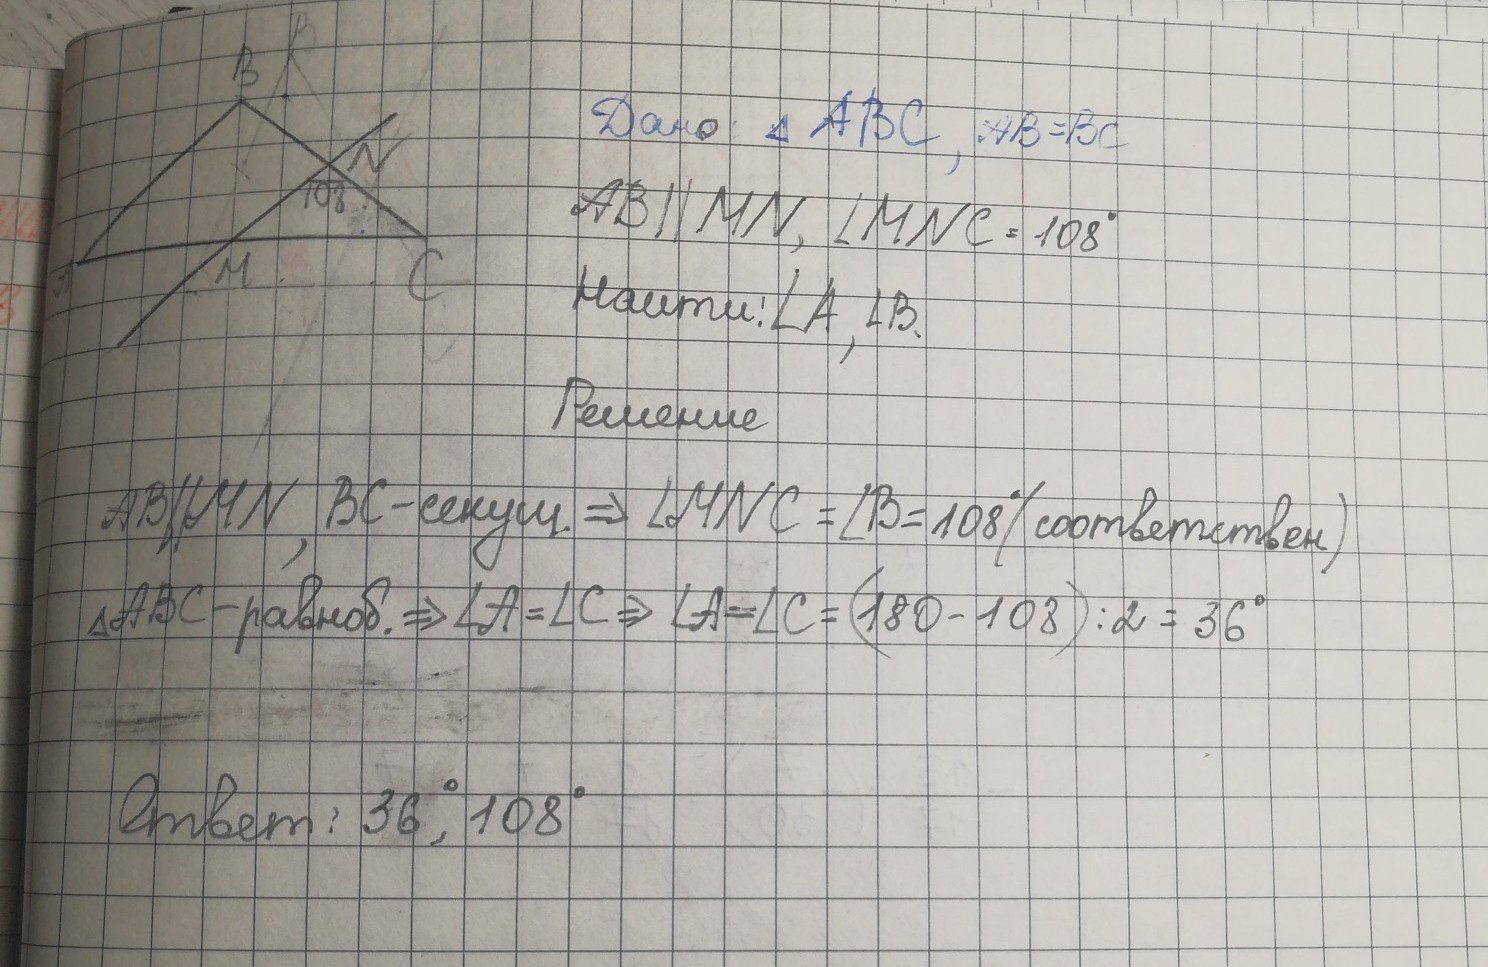 B
N
108
A
M
C
Дано: △ ABC, AB=BC
AB||MN, ∠MNC=108°
Найти: ∠A, ∠B.
Решение
AB||MN, BC-секущ. ⇒ ∠MNC=∠B=108°(соответствен)
△ABC-равноб. ⇒ ∠A=∠C ⇒ ∠A=∠C=(180-108):2=36°
Ответ: 36°, 108°